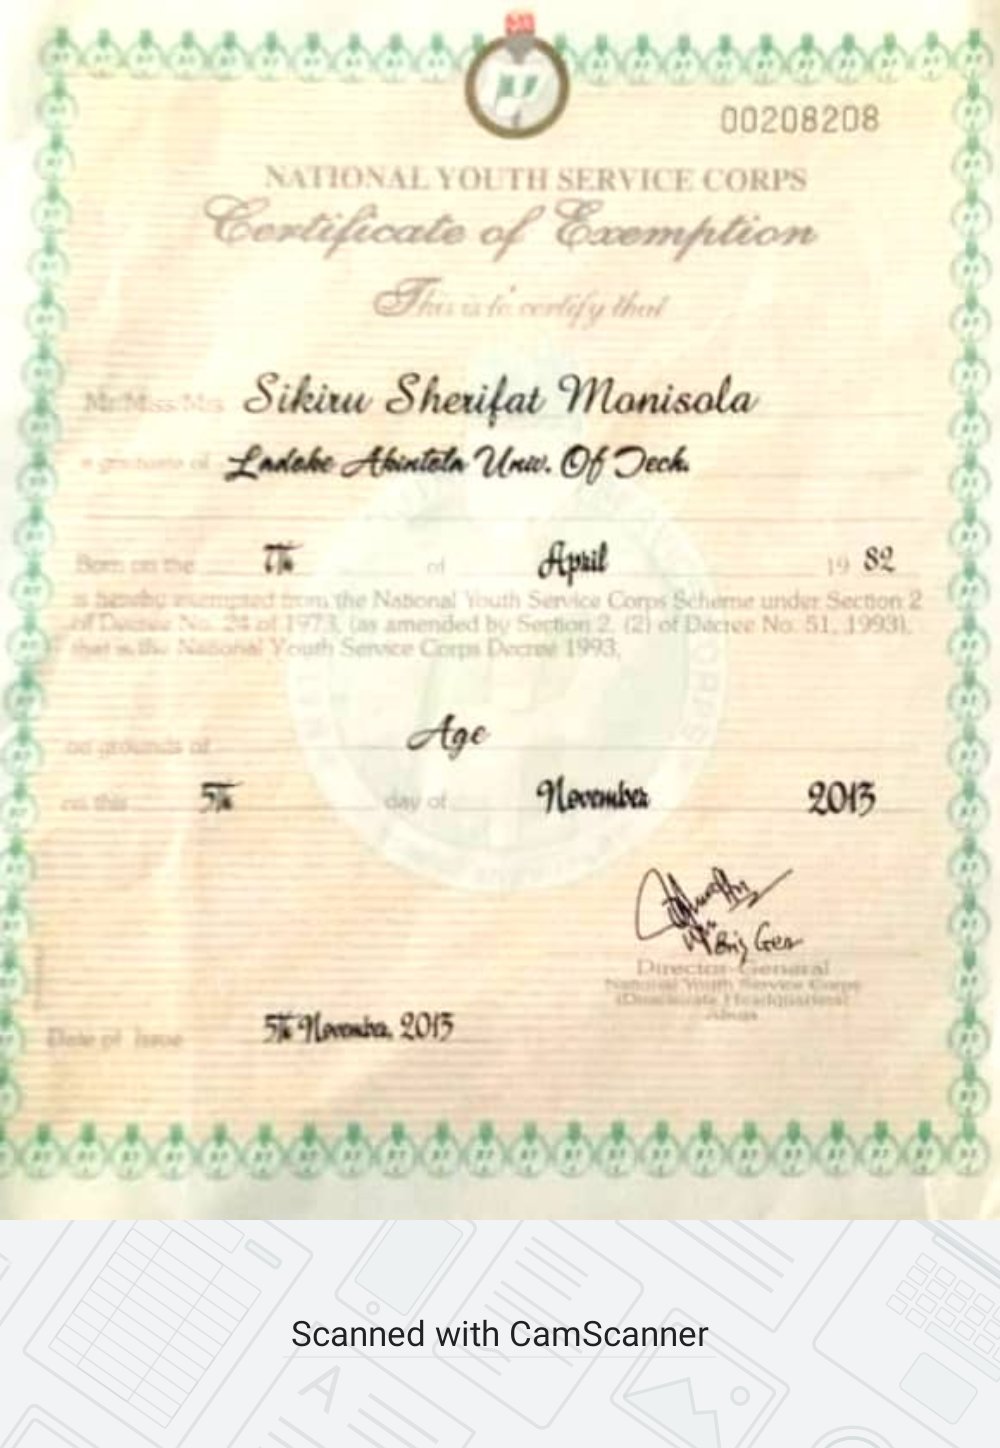 00208208
NATIONAL YOUTH SERVICE CORPS
Certificate of Exemption
This is to certify that
Mr/Miss/Mrs Sikiru Sherifat Monisola
a graduate of Ladoke Akintola Univ. Of Tech.
Born on the 7th of April 19 82
is hereby exempted from the National Youth Service Corps Scheme under Section 2
of Decree No. 24 of 1973, (as amended by Section 2, (2) of Decree No. 51, 1993),
that is the National Youth Service Corps Decree 1993,
on grounds of Age
on this 5th day of November 2013
Brig Gen
Director-General
National Youth Service Corps
(Directorate Headquarters)
Abuja
Date of Issue 5th November, 2013
Scanned with CamScanner